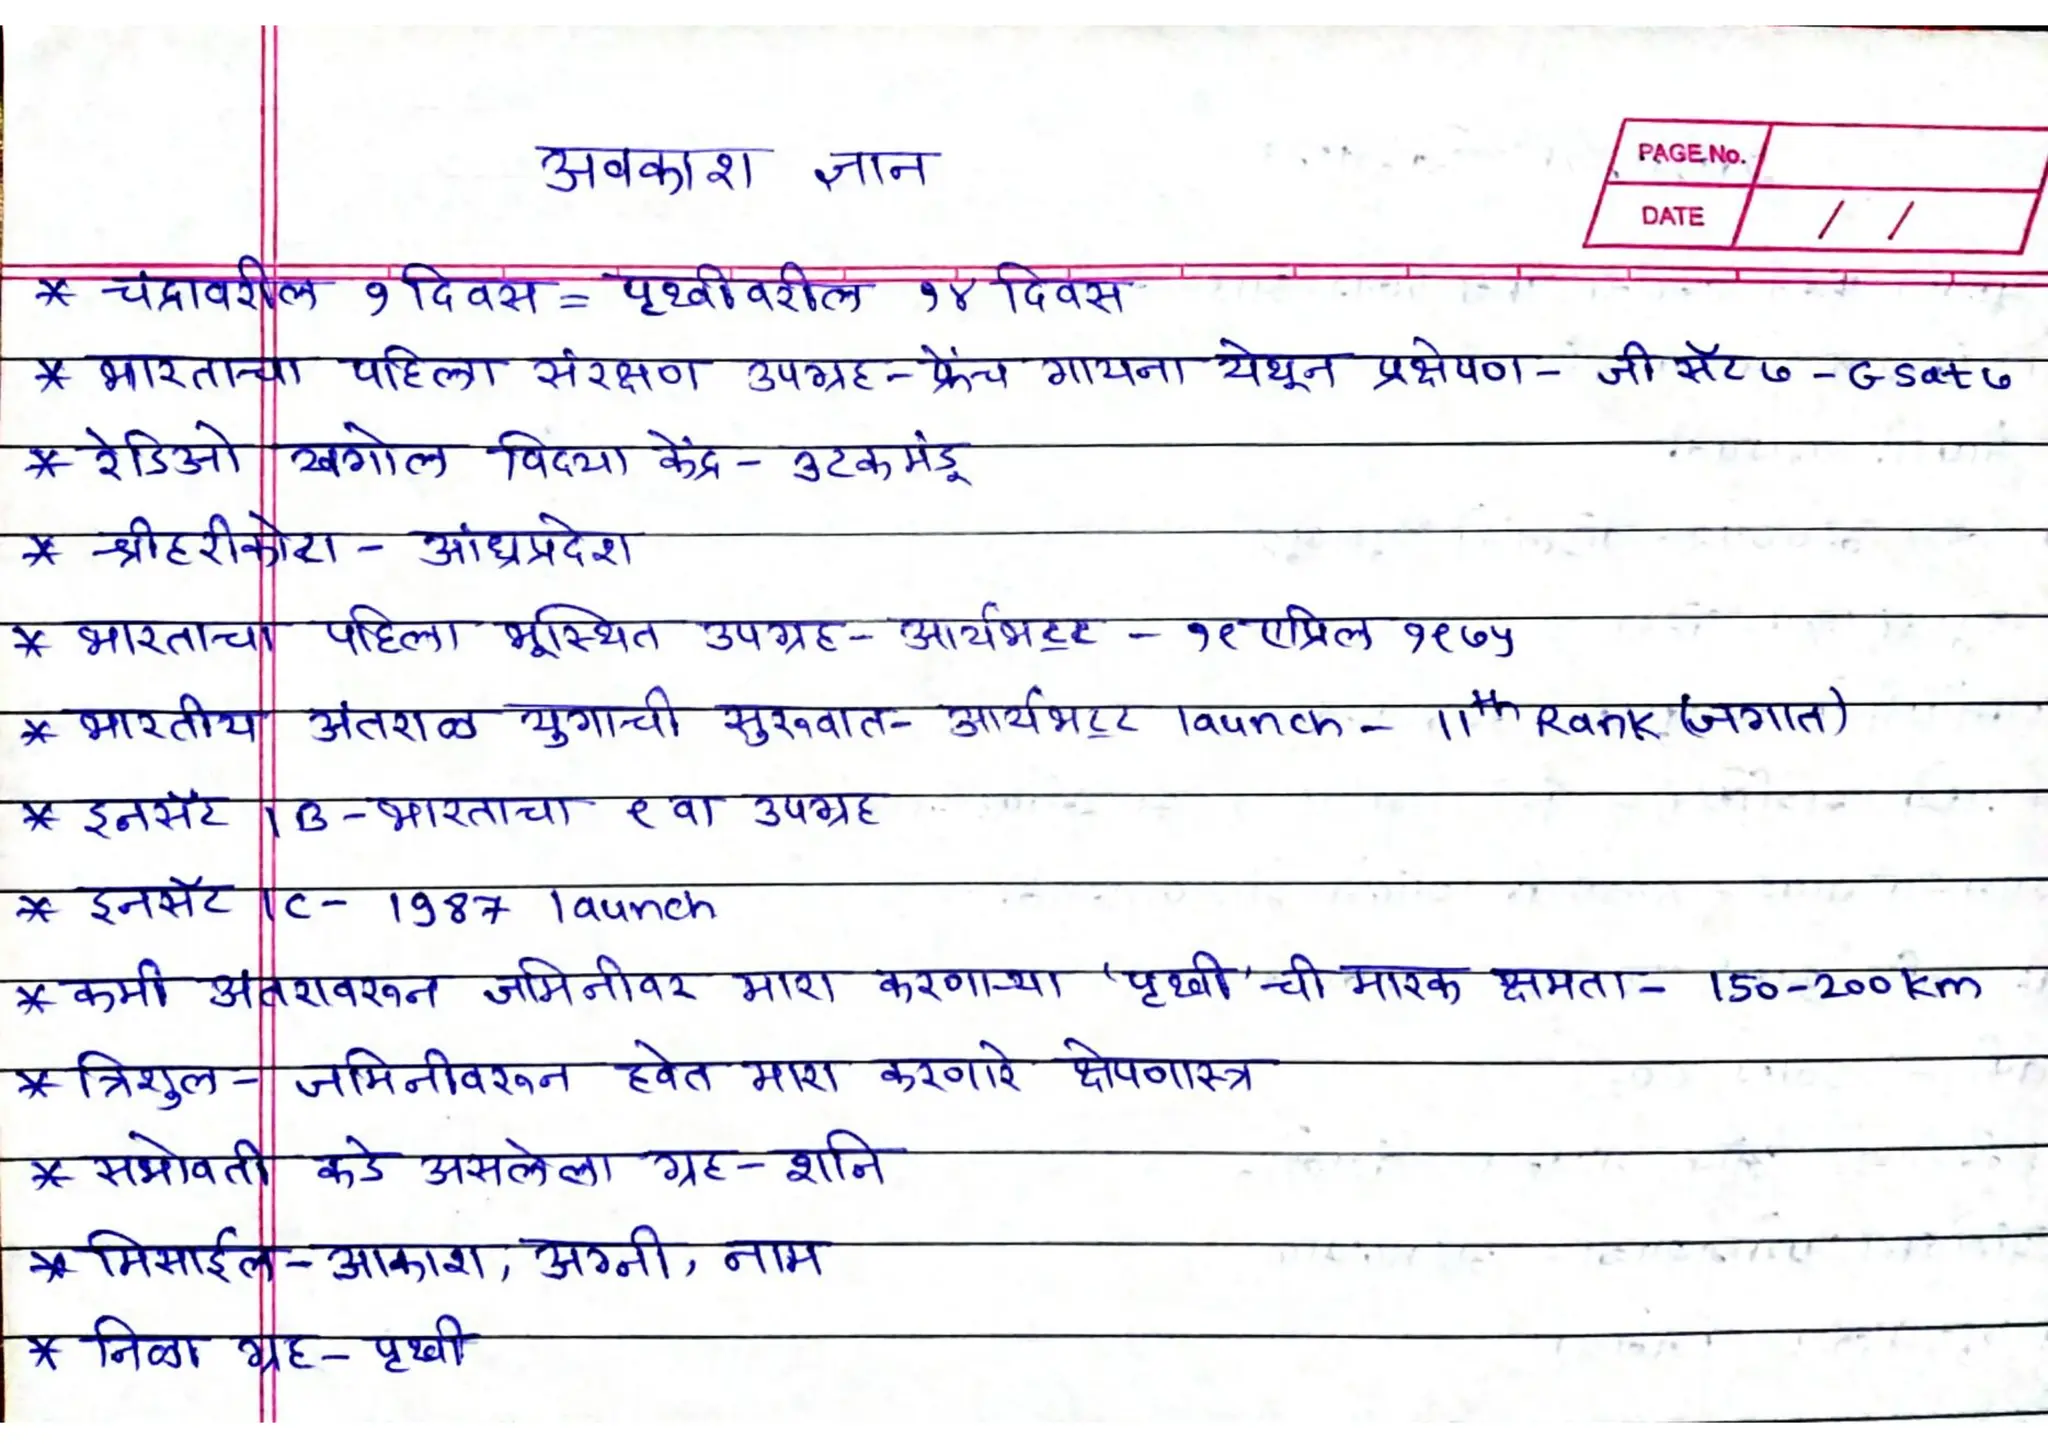 अवकाश ज्ञान
PAGE No.
DATE / /
* चंद्रावरील १ दिवस = पृथ्वीवरील १४ दिवस
* भारताचा पहिला संरक्षण उपग्रह - फ्रेंच गायना येथून प्रक्षेपण - जी सॅट ७ - Gsat ७
* रेडिओ खगोल विद्या केंद्र - उटकमंडू
* श्रीहरीकोटा - आंध्रप्रदेश
* भारताचा पहिला भूस्थित उपग्रह - आर्यभट्ट - १९ एप्रिल १९७५
* भारतीय अंतराळ युगाची सुरुवात - आर्यभट्ट launch - 11th Rank (जगात)
* इनसॅट 1B - भारताचा ९ वा उपग्रह
* इनसॅट 1C - 1987 launch
* कमी अंतरावरून जमिनीवर मारा करणाऱ्या 'पृथ्वी' ची मारक क्षमता - 150-200 km
* त्रिशुल - जमिनीवरून हवेत मारा करणारे क्षेपणास्त्र
* सभोवती कडे असलेला ग्रह - शनि
* मिसाईल - आकाश, अग्नी, नाम
* निळा ग्रह - पृथ्वी